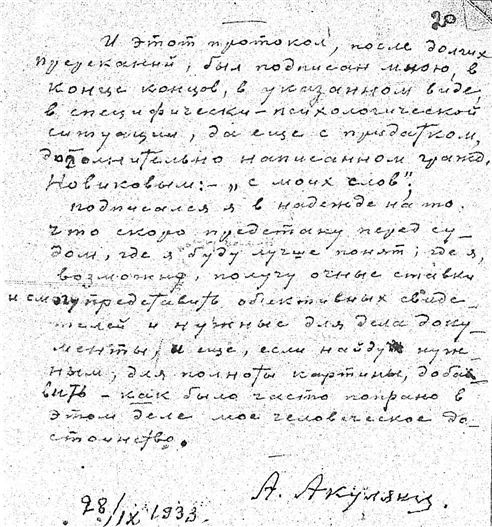 20
И этот протокол, после долгих
пререканий, был подписан мною, в
конце концов, в указанном виде,
в специфически-психологической
ситуации, да еще с придатком,
дополнительно написанном гражд.
Новиковым: - „с моих слов".
Подписался я в надежде на то,
что скоро предстану перед су-
дом, где я буду лучше понят; где я,
возможно, получу очные ставки
и смогу представить объективных свиде-
телей и нужные для дела доку-
менты; и еще, если найду нуж-
ным, для полноты картины, доба-
вить - как было часто попрано в
этом деле мое человеческое до-
стоинство.
А. Акулянц
28/IX 1933.